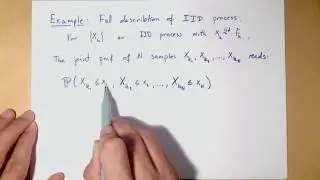 Example: Full description of IID process:
For {X_k} an IID process with X_k ~ F_X,
The joint pmf of N samples X_k₁, X_k₂, ..., X_k_N reads:
ℙ( X_k₁ ≤ x₁, X_k₂ ≤ x₂, ..., X_k_N ≤ x_N )